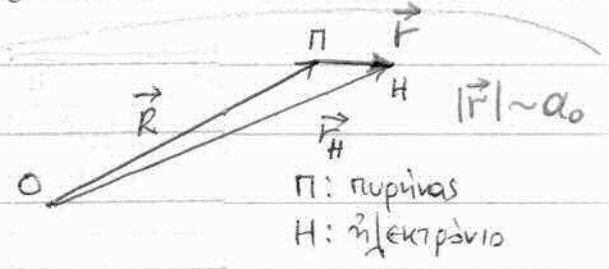 Π r⃗
R⃗ H |r⃗|~a₀
r⃗_H
O Π: πυρήνας
H: ἠλεκτρόνιο